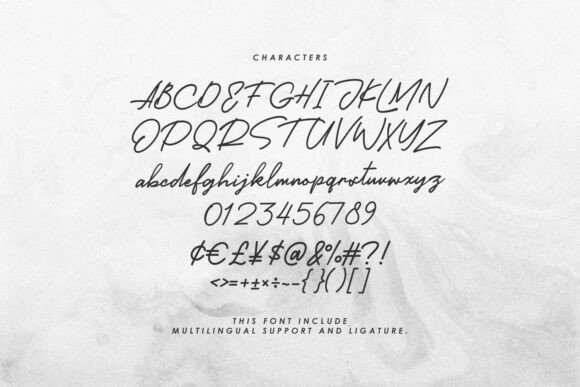 CHARACTERS
ABCDEFGHIJKLMN
OPQRSTUVWXYZ
abcdefghijklmnopqrstuvwxyz
0123456789
¢€£¥$@&%#?!
<>=+±×÷~-{}()[]
THIS FONT INCLUDE
MULTILINGUAL SUPPORT AND LIGATURE.